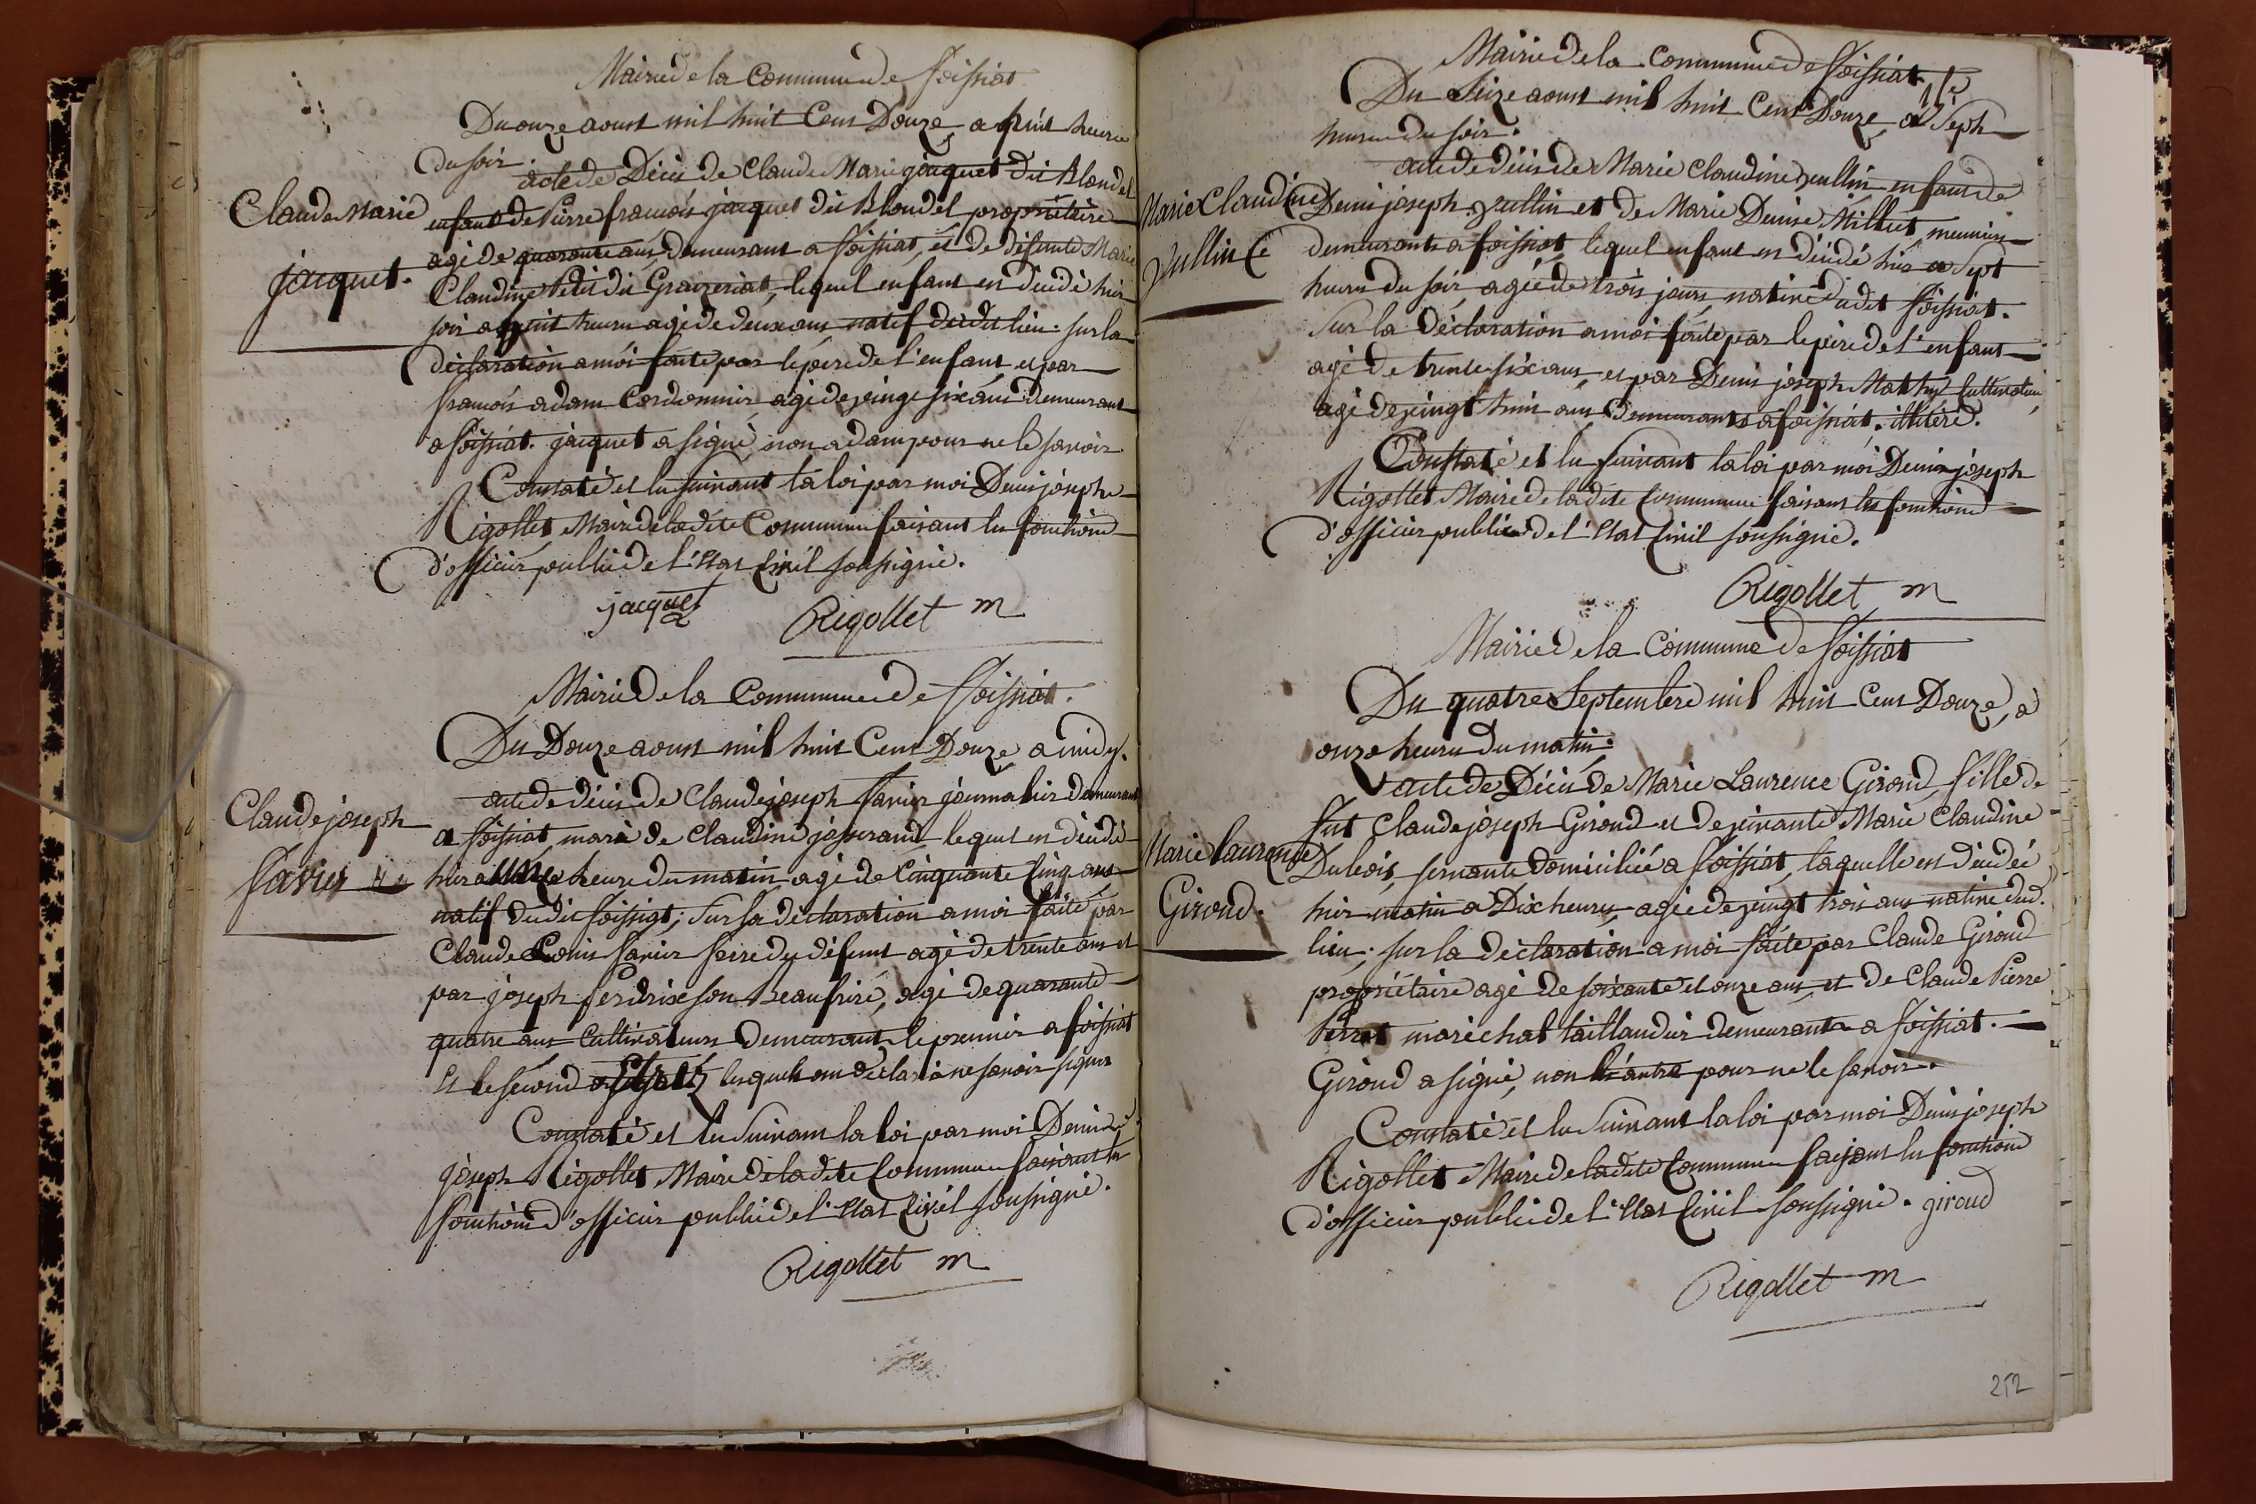 Mairie de la Commune de foissiat
Du onze aoust mil huit Cent Douze, a huit heure
du soir.
acte de Décès de Claude Marie jacquet dit Blondel
Claude Marie
jacquet.
enfant de Pierre françois jacquet dit Blondel propriétaire
agé de quarante ans demeurant a foissiat, et de défunte Marie
Claudine Petit du Graizeriat, lequel enfant est décédé hier
soir a huit heures agé de deux ans natif dudit lieu. sur la
déclaration a moi faite par le pere de l'enfant et par
françois adam Cordonnier agé de veingt six ans demeurant
a foissiat. jacquet a signé, non adam pour ne le savoir
Constaté et lu suivant la loi par moi Denis joseph
Rigollet Maire de ladite Commune faisant les fonctions
d'officier public de l'Etat Civil soussigné.
jacquet
Rigollet m
Mairie de la Commune de foissiat.
Du Douze aoust mil huit Cent Douze a midy.
acte de décès de Claude joseph favier journalier demeurant
Claude joseph
favier
a foissiat mari de Claudine josserand lequel est décédé
hier a onze heure du matin agé de Cinquante Cinq ans
natif dudit foissiat; sur la déclaration a moi faite par
Claude Louis favier frere du défunt agé de trente ans et
par joseph ferdrix son Beaufrire, agé de quarante
quatre ans Cultivateurs demeurant le premier a foissiat
Et le second a lesquels ont déclaré ne savoir signer
Constaté et lu suivant la loi par moi Denis
joseph Rigollet Maire de ladite Commune faisant les
fonctions d'officier public de l'Etat Civil soussigné.
Rigollet m
Mairie de la Commune de foissiat
Du Seize aoust mil huit Cent Douze, a Sept
heures du soir.
acte de décès de Marie Claudine Vullin enfant de
Marie Claudine
Vullin
Denis joseph Vullin et de Marie Denise Millet meunier
demeurants a foissiat, lequel enfant est décédé hier a sept
heures du soir agée de trois jours, natine dudit foissiat.
Sur la déclaration a moi faite par le pere de l'enfant
agé de trente six ans, et par Denis joseph Mathy Cultivateur,
agé de veingt huit ans Demeurants a foissiat. illitéré.
Constaté et lu suivant la loi par moi Denis joseph
Rigollet Maire de ladite Commune faisant les fonctions
d'officier public de l'Etat Civil soussigné.
Rigollet m
Mairie de la Commune de foissiat
Du quatre Septembre mil huit Cent Douze, a
onze heures du matin.
acte de Décès de Marie Laurence Giroud, fille de
fut Claude joseph Giroud et de vivante Marie Claudine
Marie laurence
Giroud.
Dubois, servante domiciliée a foissiat, laquelle est décédée
hier matin a Dix heures, agée de veingt trois ans natine dud.
lieu; sur la déclaration a moi faite par Claude Giroud
propriétaire agé de soixante et onze ans et de Claude Pierre
Perret maréchal taillandier demeurants a foissiat.
Giroud a signé, non l'autre pour ne le savoir.
Constaté et lu Suivant la loi par moi Denis joseph
Rigollet Maire de ladite Commune faisant les fonctions
d'officier public de l'Etat Civil soussigné. giroud
Rigollet m
252